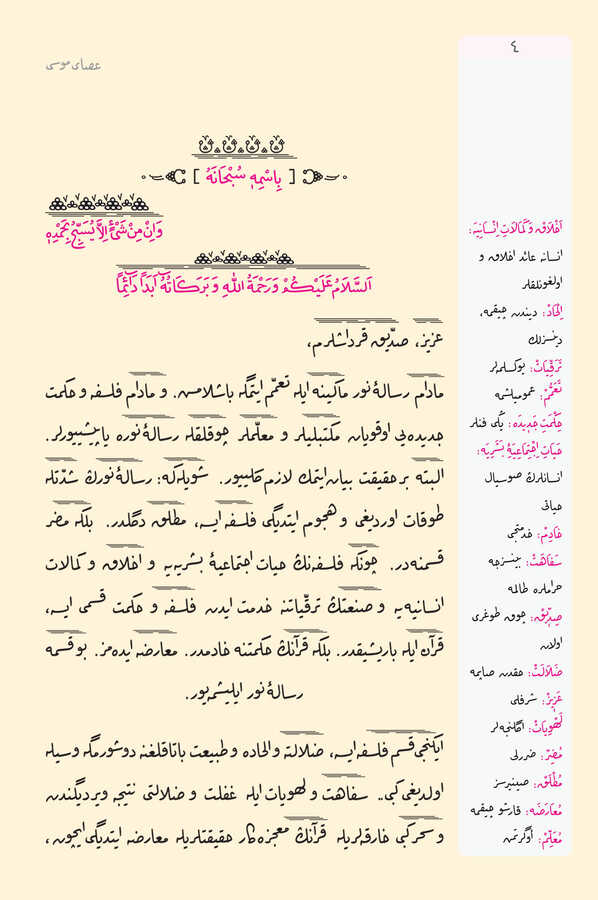 ٤
عصای موسی
[ بِاسْمِهٖ سُبْحَانَهُ ]
وَاِنْ مِنْ شَیْءٍ اِلَّا یُسَبِّحُ بِحَمْدِهٖ
اَلسَّلَامُ عَلَیْكُمْ وَرَحْمَةُ اللّٰهِ وَبَرَكَاتُهُ اَبَدًا دَائِمًا
عزیز، صدّیق قرداشلرم،
مادام رسالۀ نور ماکینه ایله تعمّم ایتمگه باشلامش. و مادام فلسفه و حکمت
جدیده‌یی اوقویان مکتبلیلر و معلّملر چوقلقله رسالۀ نوره یاپیشییورلر.
البته بر حقیقت بیان ایتمك لازم کلییور. شویله‌که: رسالۀ نورڭ شدّتله
طوقات اوردیغی و هجوم ایتدیگی فلسفه ایسه، مطلق دگلدر. بلکه مضر
قسمنه‌در. چونکه فلسفه‌نڭ حیات اجتماعیۀ بشریه‌یه و اخلاق و کمالات
انسانیه‌یه و صنعتڭ ترقّیاتنه خدمت ایدن فلسفه و حکمت قسمی ایسه،
قرآن ایله باریشیقدر. بلکه قرآنڭ حکمتنه خادمدر. معارضه ایده‌مز. بو قسمه
رسالۀ نور ایلیشمه‌یور.
ایکنجی قسم فلسفه ایسه، ضلالته و الحاده و طبیعت باتاقلغنه دوشورمگه وسیله
اولدیغی کبی.. سفاهت و لهویات ایله غفلت و ضلالتی نتیجه ویردیگندن
و سحر کبی خارقه‌لریله قرآنڭ معجزه‌کار حقیقتلریله معارضه ایتدیگی ایچون،
اَخْلَاقِ وَ كَمَالَاتِ اِنْسَانِیَه:
انسانه عائد اخلاق و
اولغونلقلر
اِلْحَادْ: دیندن چیقمه،
دینسزلك
تَرَقِّیَاتْ: یوکسلمه‌لر
تَعَمُّمْ: عمومیلشمه
حِكْمَتِ جَدِیدَه: یڭی فنلر
حَیَاتِ اِجْتِمَاعِیَۀِ بَشَرِیَه:
انسانلرڭ صوسیال
حیاتی
خَادِمْ: خدمتجی
سَفَاهَتْ: بینسزجه
حراملره طالمه
صِدِّیقْ: چوق طوغری
اولان
ضَلَالَتْ: حقدن صاپمه
عَزِیزْ: شرفلی
لَهْوِیَاتْ: اگلنجه‌لر
مُضِرّ: ضررلی
مُطْلَقْ: صینیرسز
مُعَارَضَه: قارشو چیقمه
مُعَلِّمْ: اوگرتمن